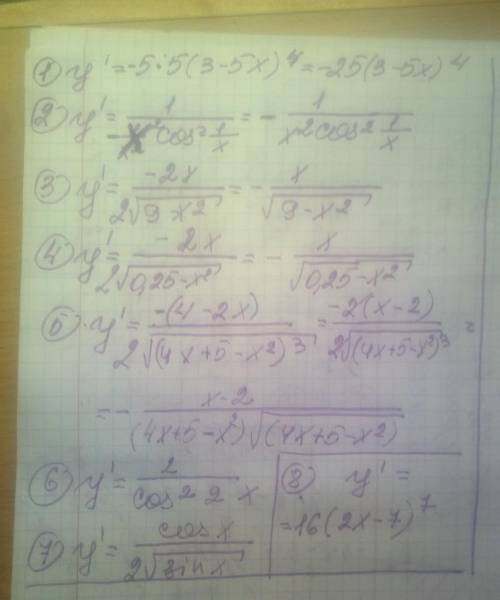 ① y' = -5·5(3-5x)⁴ = -25(3-5x)⁴
② y' = 1/(-x²cos² 1/x) = - 1/(x²cos² 1/x)
③ y' = -2x/(2√(9-x²)) = - x/√(9-x²)
④ y' = -2x/(2√(0,25-x²)) = - x/√(0,25-x²)
⑤ y' = -(4-2x)/(2√(4x+5-x²)³) = -2(x-2)/(2√(4x+5-x²)³) =
= - x-2/((4x+5-x²)√(4x+5-x²))
⑥ y' = 2/(cos² 2x)
⑦ y' = cosx/(2√(sinx))
⑧ y' =
= 16(2x-7)⁷